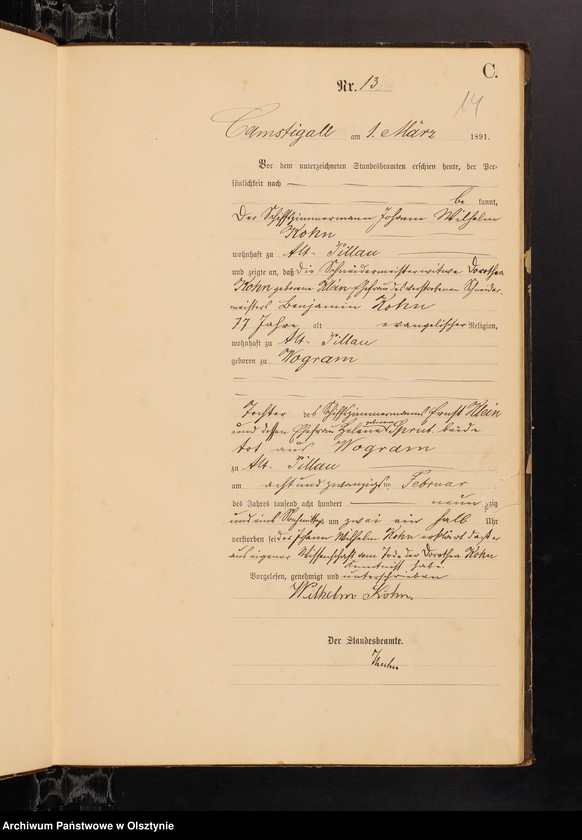 C.
Nr. 13
14
Camstigall am 1. März 1891.
Vor dem unterzeichneten Standesbeamten erschien heute, der Per-
sönlichkeit nach
be kannt,
Der Schiffszimmermann Johann Wilhelm
Kohn
wohnhaft zu Alt-Pillau
und zeigte an, daß die Schneidermeisterwitwe Dorothea
Kohn geborene Klein Ehefrau des verstorbenen Schneider-
meisters Benjamin Kohn
77 Jahre alt evangelischer Religion,
wohnhaft zu Alt-Pillau
geboren zu Wogram
Tochter des Schiffszimmermanns Ernst Klein
und dessen Ehefrau Helene geborene beide
tot aus Wogram
zu Alt-Pillau
am achtundzwanzigsten Februar
des Jahres tausend acht hundert neun zig
und eins Nachmittags um zwei ein halb Uhr
verstorben sei der Johann Wilhelm Kohn erklärt daß er
aus eigener Wissenschaft vom Tode der Dorothea Kohn
Kenntniß habe.
Vorgelesen, genehmigt und unterschrieben
Wilhelm Kohn.
Der Standesbeamte.
Archiwum Państwowe w Olsztynie